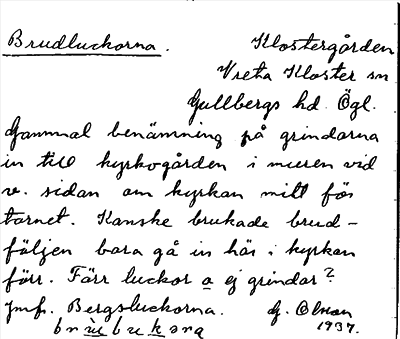 Brudluckorna.
Klostergården
Vreta Kloster sn
Gullbergs hd. Ögl.
Gammal benämning på grindarna
in till kyrkogården i muren vid
v. sidan om kyrkan mitt för
tornet. Kanske brukade brud-
följen bara gå in här i kyrkan
förr. Förr luckor o ej grindar?
Jmfr. Bergsluckorna. G. Olson
1937.